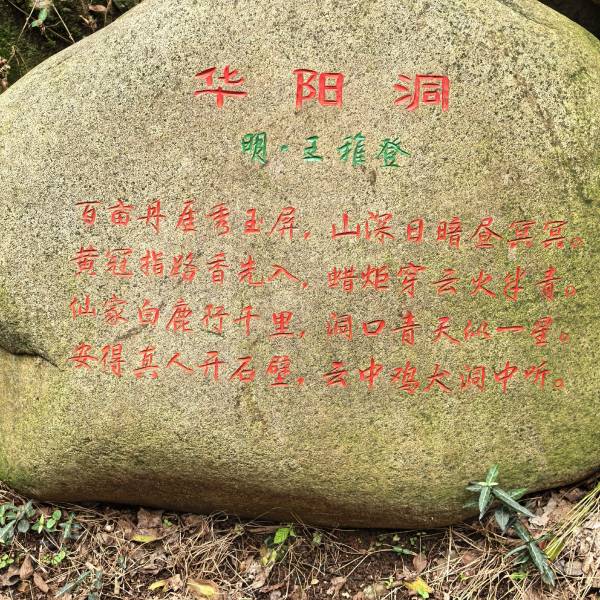 华阳洞
明·王稚登
百亩丹崖秀玉屏，山深日暗昼冥冥。
黄冠指路香先入，蜡炬穿云火半青。
仙家白鹿行千里，洞口青天似一星。
安得真人开石壁，云中鸡犬洞中听。